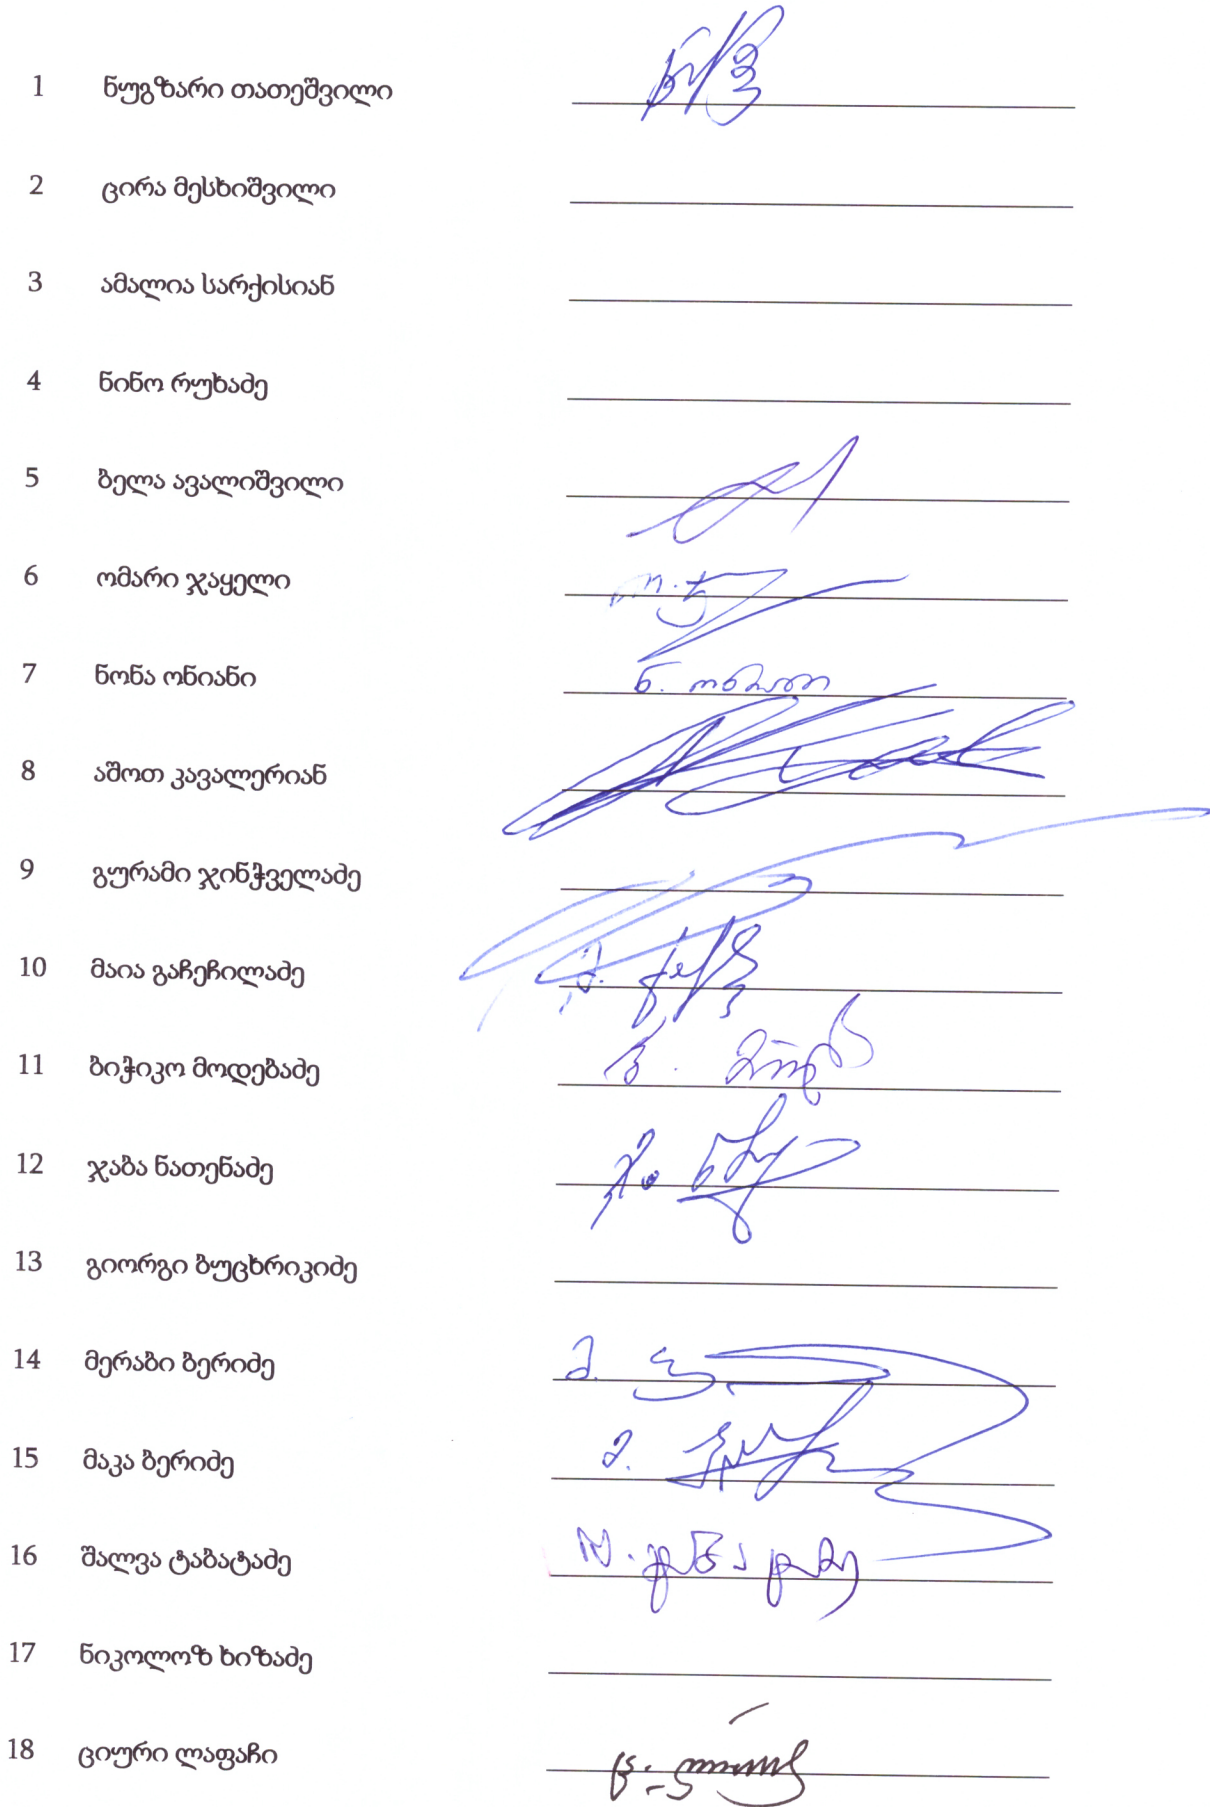 1 ნუგზარი თათეშვილი
2 ცირა მესხიშვილი
3 ამალია სარქისიან
4 ნინო რუხაძე
5 ბელა ავალიშვილი
6 ომარი ჯაყელი
7 ნონა ონიანი
ნ. ონიანი
8 აშოთ კავალერიან
9 გურამი ჯინჭველაძე
10 მაია გაჩეჩილაძე
11 ბიჭიკო მოდებაძე
12 ჯაბა ნათენაძე
13 გიორგი ბუცხრიკიძე
14 მერაბი ბერიძე
15 მაკა ბერიძე
16 შალვა ტაბატაძე
17 ნიკოლოზ ხიზაძე
18 ციური ლაფაჩი